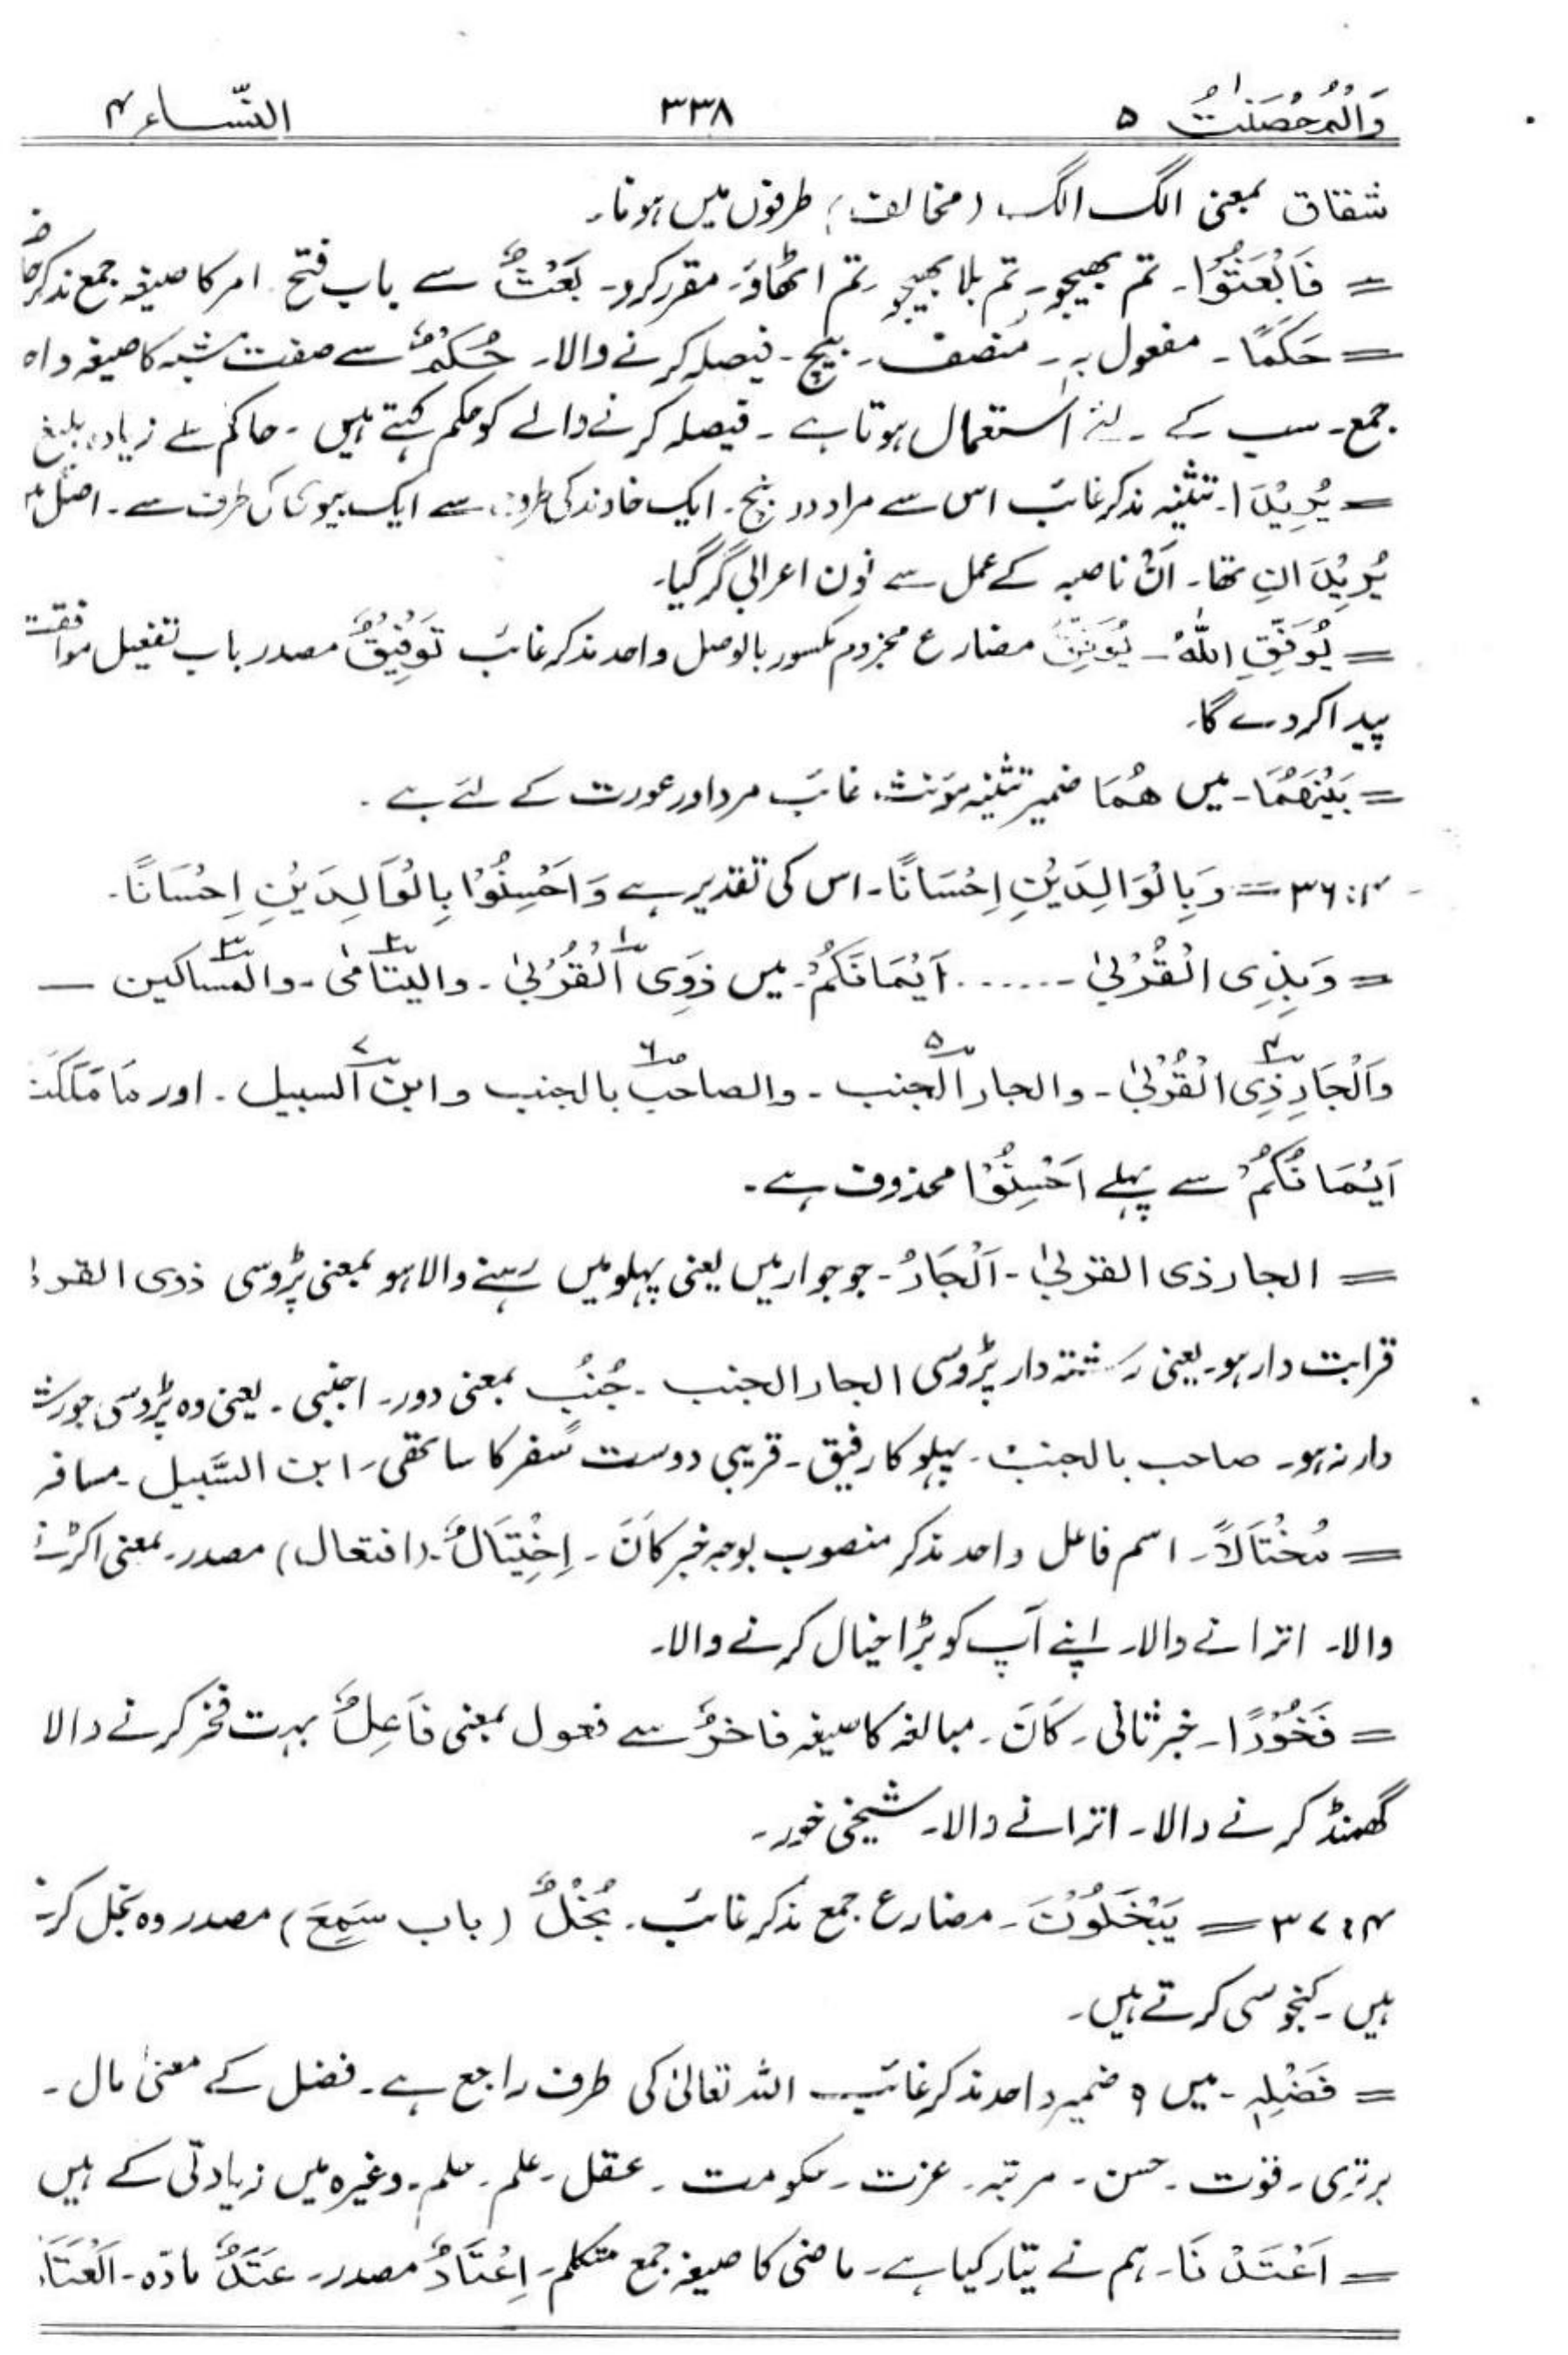 وَالْمُحْصَنٰتُ ۵ ۳۳۸ النّساء ۴
شقاق بمعنی الگ الگ (مخالف) طرفوں میں ہونا۔
= فَابْعَثُوْا۔ تم بھیجو۔ تم بلا بھیجو۔ تم اٹھاؤ۔ مقرر کرو۔ بَعْثٌ سے باب فتح امر کا صیغہ جمع مذکر حاضر
= حَكَمًا۔ مفعول بہٖ۔ منصف۔ پنچ۔ فیصلہ کرنے والا۔ حُكْمٌ سے صفت مشبہ کا صیغہ واحد
جمع۔ سب کے لئے استعمال ہوتا ہے۔ فیصلہ کرنے والے کو حکم کہتے ہیں۔ حاکم سے زیادہ بلیغ
= يُرِيْدَا۔ تثنیہ مذکر غائب اس سے مراد دو پنچ۔ ایک خاوند کی طرف سے ایک بیوی کی طرف سے۔ اصل میں
يُرِيْدَانِ تھا۔ اَنْ ناصبہ کے عمل سے نون اعرابی گر گیا۔
= يُوَفِّقِ اللّٰهُ۔ يُوَفِّقِ مضارع مجزوم مکسور بالوصل واحد مذکر غائب تَوْفِيْقٌ مصدر باب تفعیل موافقت
پیدا کر دے گا۔
= بَيْنَهُمَا۔ میں هُمَا ضمیر تثنیہ مؤنث۔ غائب مرد اور عورت کے لئے ہے۔
۴: ۳۶ = وَبِالْوَالِدَيْنِ اِحْسَانًا۔ اس کی تقدیر ہے وَاَحْسِنُوْا بِالْوَالِدَيْنِ اِحْسَانًا۔
= وَبِذِى الْقُرْبٰى ۔...... اَيْمَانُكُمْ۔ میں ذَوِى الْقُرْبٰى ۱۔ والیتامٰی ۲۔ والمساکین ۳ —
وَالْجَارِ ذِى الْقُرْبٰى ۴۔ والجار الجنب ۵۔ والصاحب بالجنب ۶ وابن السبیل ۷۔ اور مَا مَلَكَتْ
اَيْمَانُكُمْ سے پہلے اَحْسِنُوْا محذوف ہے۔
= الجار ذی القربٰی۔ اَلْجَارُ۔ جو جوار میں یعنی پہلو میں رہنے والا ہو بمعنی پڑوسی ذوی القربٰی
قرابت دار ہو۔ یعنی رشتہ دار پڑوسی الجار الجنب۔ جُنُبٌ بمعنی دور۔ اجنبی۔ یعنی وہ پڑوسی جو رشتہ
دار نہ ہو۔ صاحب بالجنب۔ پہلو کا رفیق۔ قریبی دوست سفر کا ساتھی۔ ابن السَّبیل۔ مسافر
= مُخْتَالًا۔ اسم فاعل واحد مذکر منصوب بوجہ خبر كَانَ۔ اِخْتِيَالٌ۔ (افتعال) مصدر۔ بمعنی اکڑنے
والا۔ اترانے والا۔ اپنے آپ کو بڑا خیال کرنے والا۔
= فَخُوْرًا۔ خبر ثانی۔ كَانَ۔ مبالغہ کا صیغہ فاخرٌ سے فعول بمعنی فَاعِلٌ بہت فخر کرنے والا
گھمنڈ کرنے والا۔ اترانے والا۔ شیخی خور۔
۴: ۳۷ = يَبْخَلُوْنَ۔ مضارع جمع مذکر غائب۔ بُخْلٌ (باب سَمِعَ) مصدر وہ بخل کرتے
ہیں۔ کنجوسی کرتے ہیں۔
= فَضْلِهٖ۔ میں هٖ ضمیر واحد مذکر غائب اللہ تعالیٰ کی طرف راجع ہے۔ فضل کے معنیٰ مال۔
برتری۔ قوت۔ حسن۔ مرتبہ۔ عزت۔ حکومت۔ عقل۔ علم۔ حلم۔ وغیرہ میں زیادتی کے ہیں
= اَعْتَدْنَا۔ ہم نے تیار کیا ہے۔ ماضی کا صیغہ جمع متکلم۔ اِعْتَادٌ مصدر۔ عَتَدٌ مادّہ۔ اَلْعَتَادُ